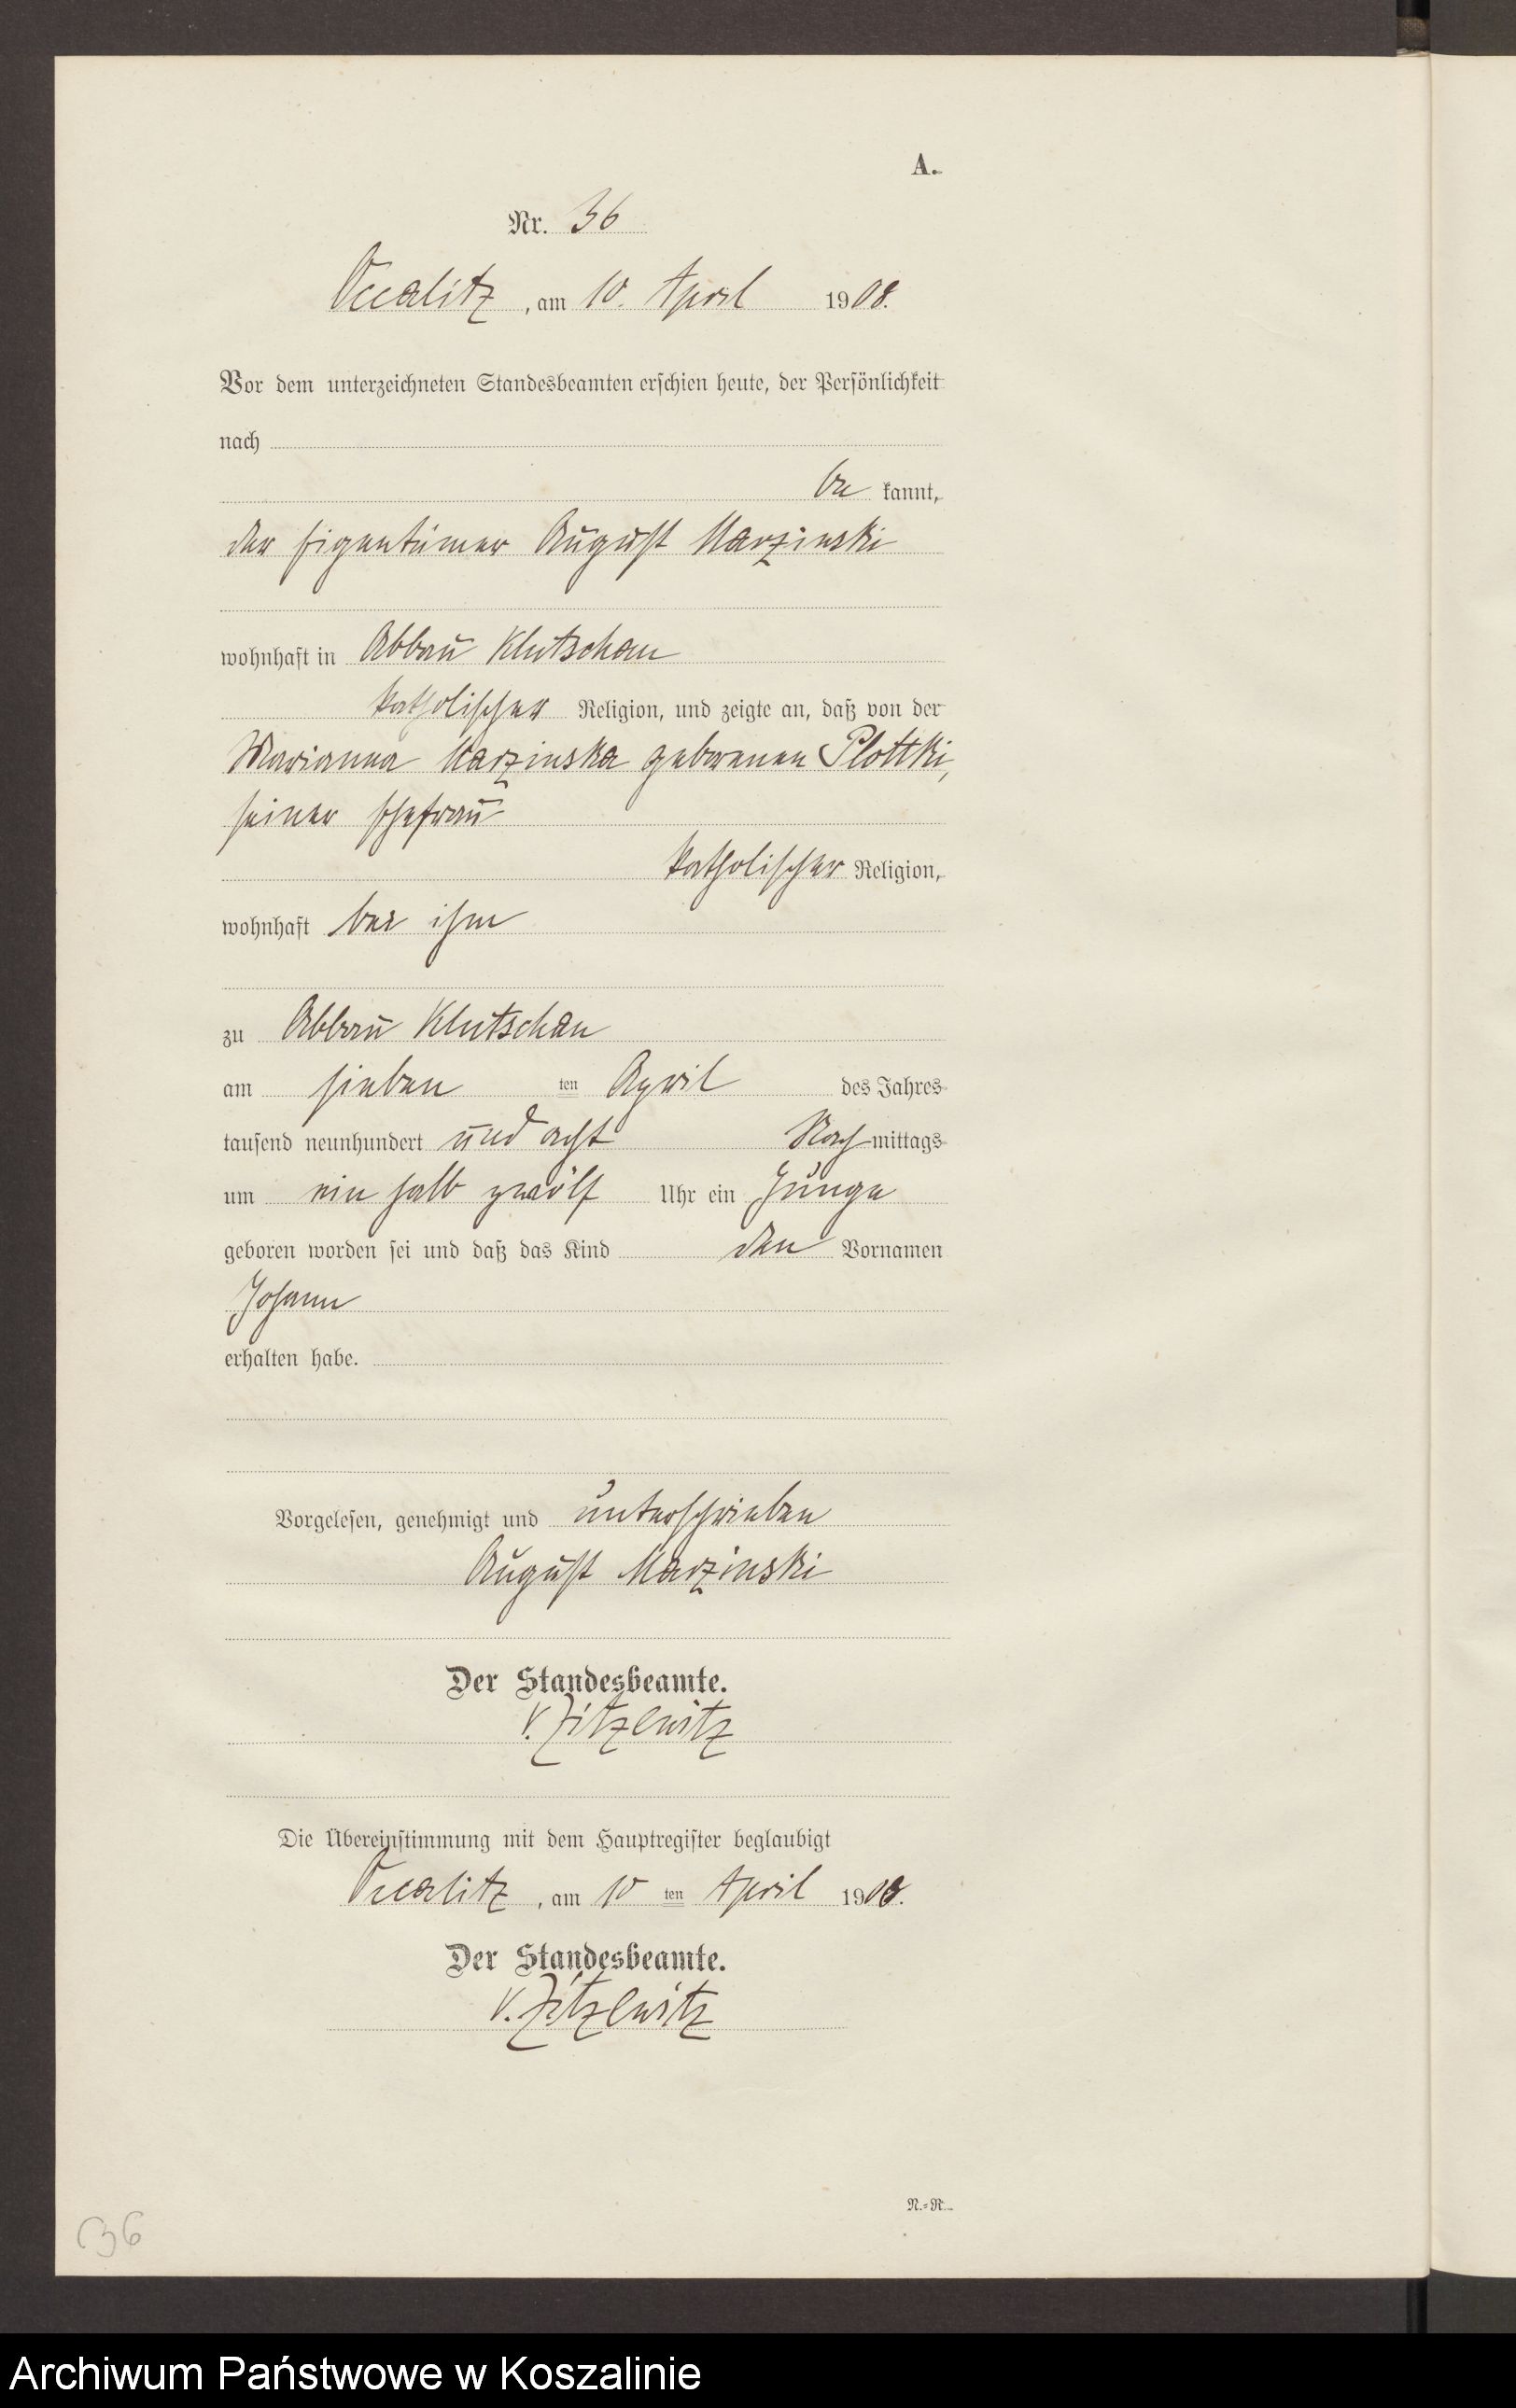 A.
Nr. 36
Occalitz, am 10. April 1908.
Vor dem unterzeichneten Standesbeamten erschien heute, der Persönlichkeit
nach
be kannt,
der Eigentümer August Marzinski
wohnhaft in Abbau Klutschau
katholischer Religion, und zeigte an, daß von der
Marianna Marzinska geborenen Plottki,
seiner Ehefrau
katholischer Religion,
wohnhaft bei ihm
zu Abbau Klutschau
am sieben ten April des Jahres
tausend neunhundert und acht Nach mittags
um ein halb zwölf Uhr ein Junge
geboren worden sei und daß das Kind den Vornamen
Johann
erhalten habe.
Vorgelesen, genehmigt und unterschrieben
August Marzinski
Der Standesbeamte.
v. Zitzewitz
Die Übereinstimmung mit dem Hauptregister beglaubigt
Occalitz, am 10 ten April 1908.
Der Standesbeamte.
v. Zitzewitz
N.=R.
36
Archiwum Państwowe w Koszalinie